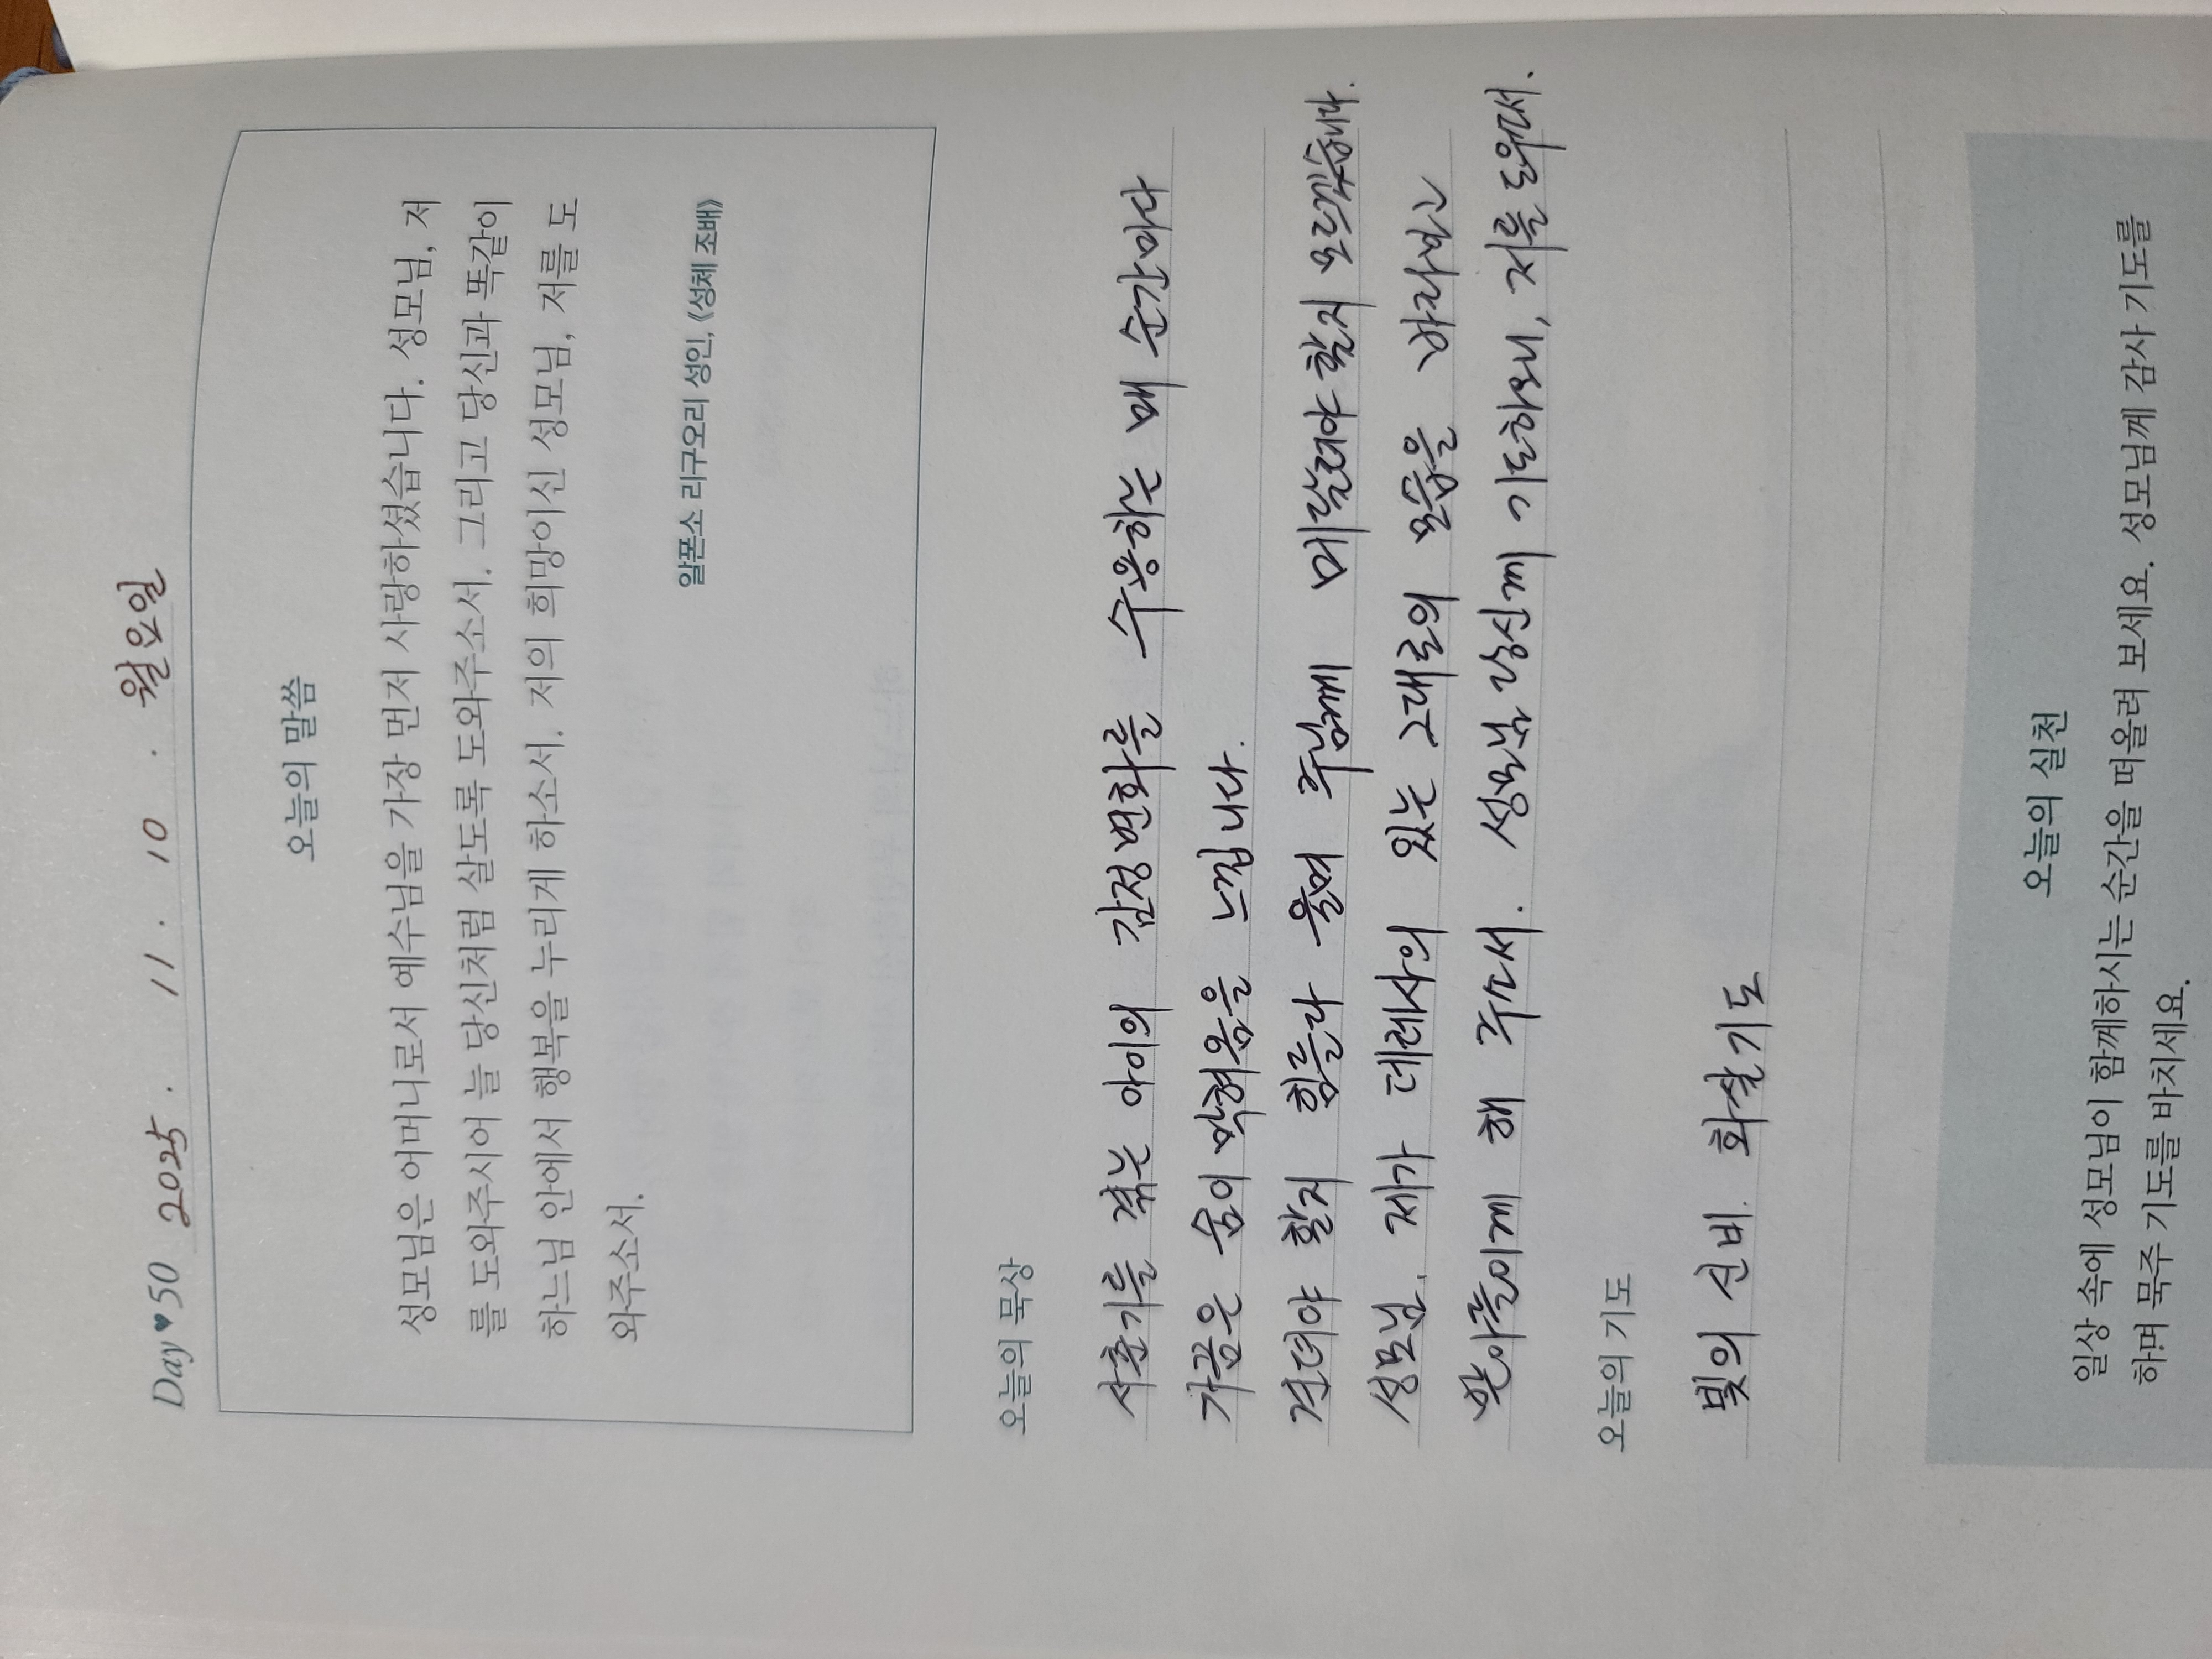 Day ♥ 50 2025. 11. 10. 월요일
오늘의 말씀
성모님은 어머니로서 예수님을 가장 먼저 사랑하셨습니다. 성모님, 저
를 도와주시어 늘 당신처럼 살도록 도와주소서. 그리고 당신과 똑같이
하느님 안에서 행복을 누리게 하소서. 저의 희망이신 성모님, 저를 도
와주소서.
알폰소 리구오리 성인, 《성체 조배》
오늘의 묵상
사춘기를 겪는 아이의 감정변화를 수용하는 매 순간마다
가끔은 숨이 막혀옴을 느낍니다.
견뎌야 할지 힘들다 울며 주님께 매달려야 할지 모르겠습니다.
성모님. 제가 데레사의 있는 그대로의 모습을 바라보고
받아들이게 해 주소서. 성모님 당신께 기도하오니, 저를 도우소서.
오늘의 기도
빛의 신비. 화살기도
오늘의 실천
일상 속에 성모님이 함께하시는 순간을 떠올려 보세요. 성모님께 감사 기도를
하며 묵주 기도를 바치세요.